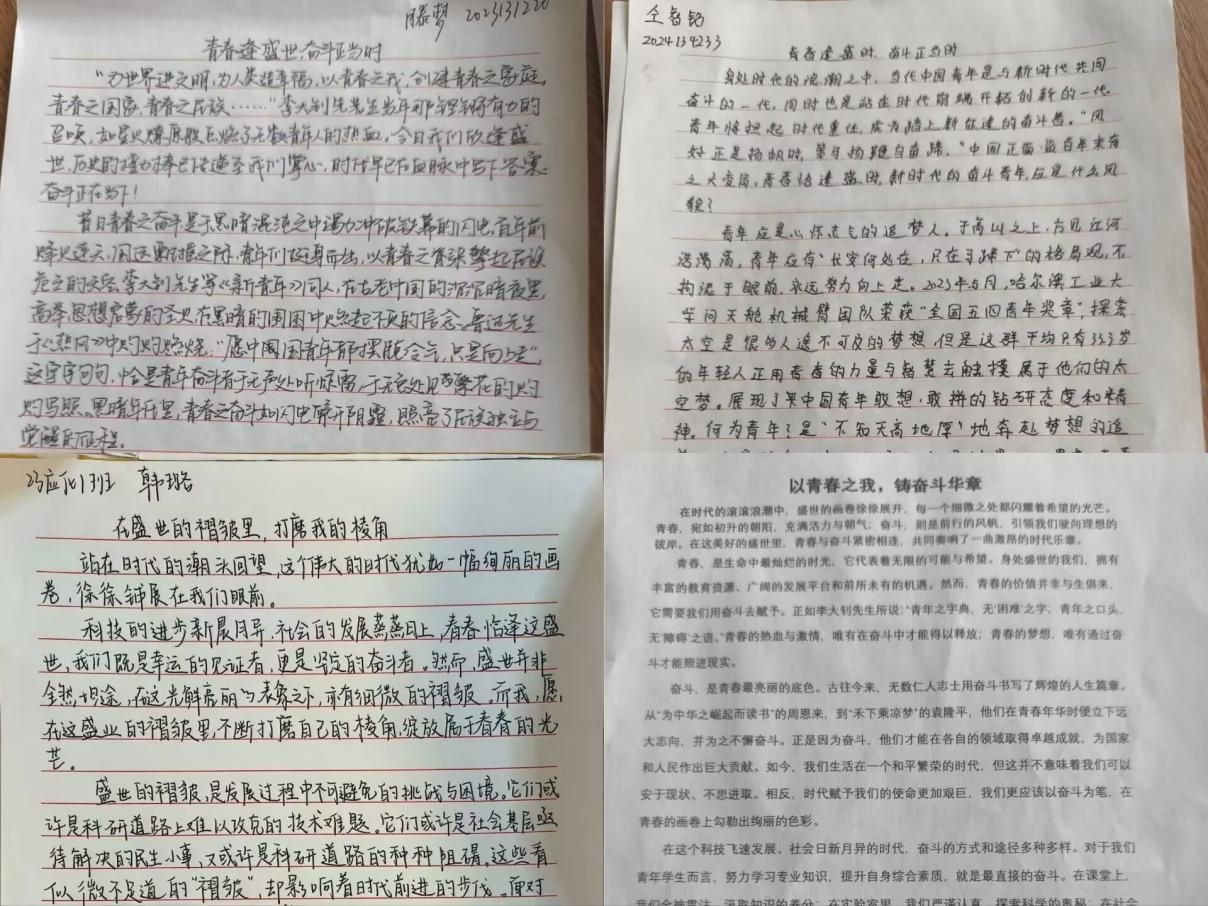 滕梦 2023131220
青春逢盛世,奋斗正当时
“为世界进文明,为人类造幸福,以青春之我,创建青春之家庭,
青春之国家,青春之民族……”李大钊先生当年那铿锵有力的
召唤,如星火燎原般点燃了无数青年人的热血,今日我们欣逢盛
世,历史的接力棒已传递至我们掌心,时代早已在血脉中写下答案:
奋斗正在当下!
昔日青春之奋斗,是于黑暗混沌之中竭力冲破铁幕的闪电,百年前
烽火连天,国运飘摇之际,青年们挺身而出,以青春之脊梁擎起民族
危亡的天空。李大钊先生等《新青年》同人,在古老中国的沉沉暗夜里,
高举思想启蒙的圣火,在黑暗的围困中燃起不灭的信念。鲁迅先生
于《热风》中灼灼燃烧:“愿中国青年都摆脱冷气,只是向上走”,
这字字句句,恰是青年奋斗者于无声处听惊雷,于无色处见繁花的灼
灼写照。黑暗年月里,青春之奋斗如闪电劈开阴霾,照亮了民族独立与
觉醒的征程。
仝睿铭
2024134233
青春逢盛时,奋斗正当时
身处时代的浪潮之中,当代中国青年是与新时代共同
奋斗的一代,同时也是站在时代前端开拓创新的一代。
青年将担起时代重任,成为踏上新征途的奋斗者。“风
好正是扬帆时,策马扬鞭自奋蹄。”中国正面临百年未有
之大变局,青春恰逢盛时,新时代的奋斗青年,应是什么风
貌?
青年应是心怀志气的追梦人。于高山之上,方见江河
浩荡荡,青年应有“长安何处在,只在马蹄下”的格局观,不
拘泥于眼前,永远努力向上走。2023年5月,哈尔滨工业大
学问天舱机械臂团队荣获“全国五四青年奖章”,探索
太空是很多人遥不可及的梦想,但是这群平均只有33.3岁
的年轻人正用青春的力量与智慧去触摸属于他们的太
空梦。展现了中国青年敢想,敢拼的钻研态度和精
神。何为青年?是“不知天高地厚”地奔赴梦想的追
23应化1班 韩璐
在盛世的褶皱里,打磨我的棱角
站在时代的潮头回望,这个伟大的时代犹如一幅绚丽的画
卷,徐徐铺展在我们眼前。
科技的进步新晨月异,社会的发展蒸蒸日上,青春恰逢这盛
世,我们既是幸运的见证者,更是坚定的奋斗者。然而,盛世并非
全然坦途,在这光鲜亮丽的表象之下,亦有细微的褶皱。而我,愿
在这盛世的褶皱里,不断打磨自己的棱角,绽放属于青春的光
芒。
盛世的褶皱,是发展过程中不可避免的挑战与困境。它们或
许是科研道路上难以攻克的技术难题。它们或许是社会基层亟
待解决的民生小事,又或许是科研道路的种种阻碍,这些看
似微不足道的“褶皱”,却影响着时代前进的步伐。面对
以青春之我,铸奋斗华章
在时代的滚滚浪潮中,盛世的画卷徐徐展开,每一个细微之处都闪耀着希望的光芒。
青春,宛如初升的朝阳,充满活力与朝气;奋斗,则是前行的风帆,引领我们驶向理想的
彼岸。在这美好的盛世里,青春与奋斗紧密相连,共同奏响了一曲激昂的时代乐章。
青春,是生命中最灿烂的时光,它代表着无限的可能与希望。身处盛世的我们,拥有
丰富的教育资源、广阔的发展平台和前所未有的机遇。然而,青春的价值并非与生俱来,
它需要我们用奋斗去赋予。正如李大钊先生所说:“青年之字典,无‘困难’之字;青年之口头,
无‘障碍’之语。”青春的热血与激情,唯有在奋斗中才能得以释放;青春的梦想,唯有通过奋
斗才能照进现实。
奋斗,是青春最亮丽的底色。古往今来,无数仁人志士用奋斗书写了辉煌的人生篇章。
从“为中华之崛起而读书”的周恩来,到“禾下乘凉梦”的袁隆平,他们在青春年华时便立下远
大志向,并为之不懈奋斗。正是因为奋斗,他们才能在各自的领域取得卓越成就,为国家
和人民作出巨大贡献。如今,我们生活在一个和平繁荣的时代,但这并不意味着我们可以
安于现状、不思进取。相反,时代赋予我们的使命更加艰巨,我们更应该以奋斗为笔,在
青春的画卷上勾勒出绚丽的色彩。
在这个科技飞速发展、社会日新月异的时代,奋斗的方式和途径多种多样。对于我们
青年学生而言,努力学习专业知识,提升自身综合素质,就是最直接的奋斗。在课堂上,
我们全神贯注,汲取知识的养分;在实验室里,我们严谨认真,探索科学的奥秘;在社会